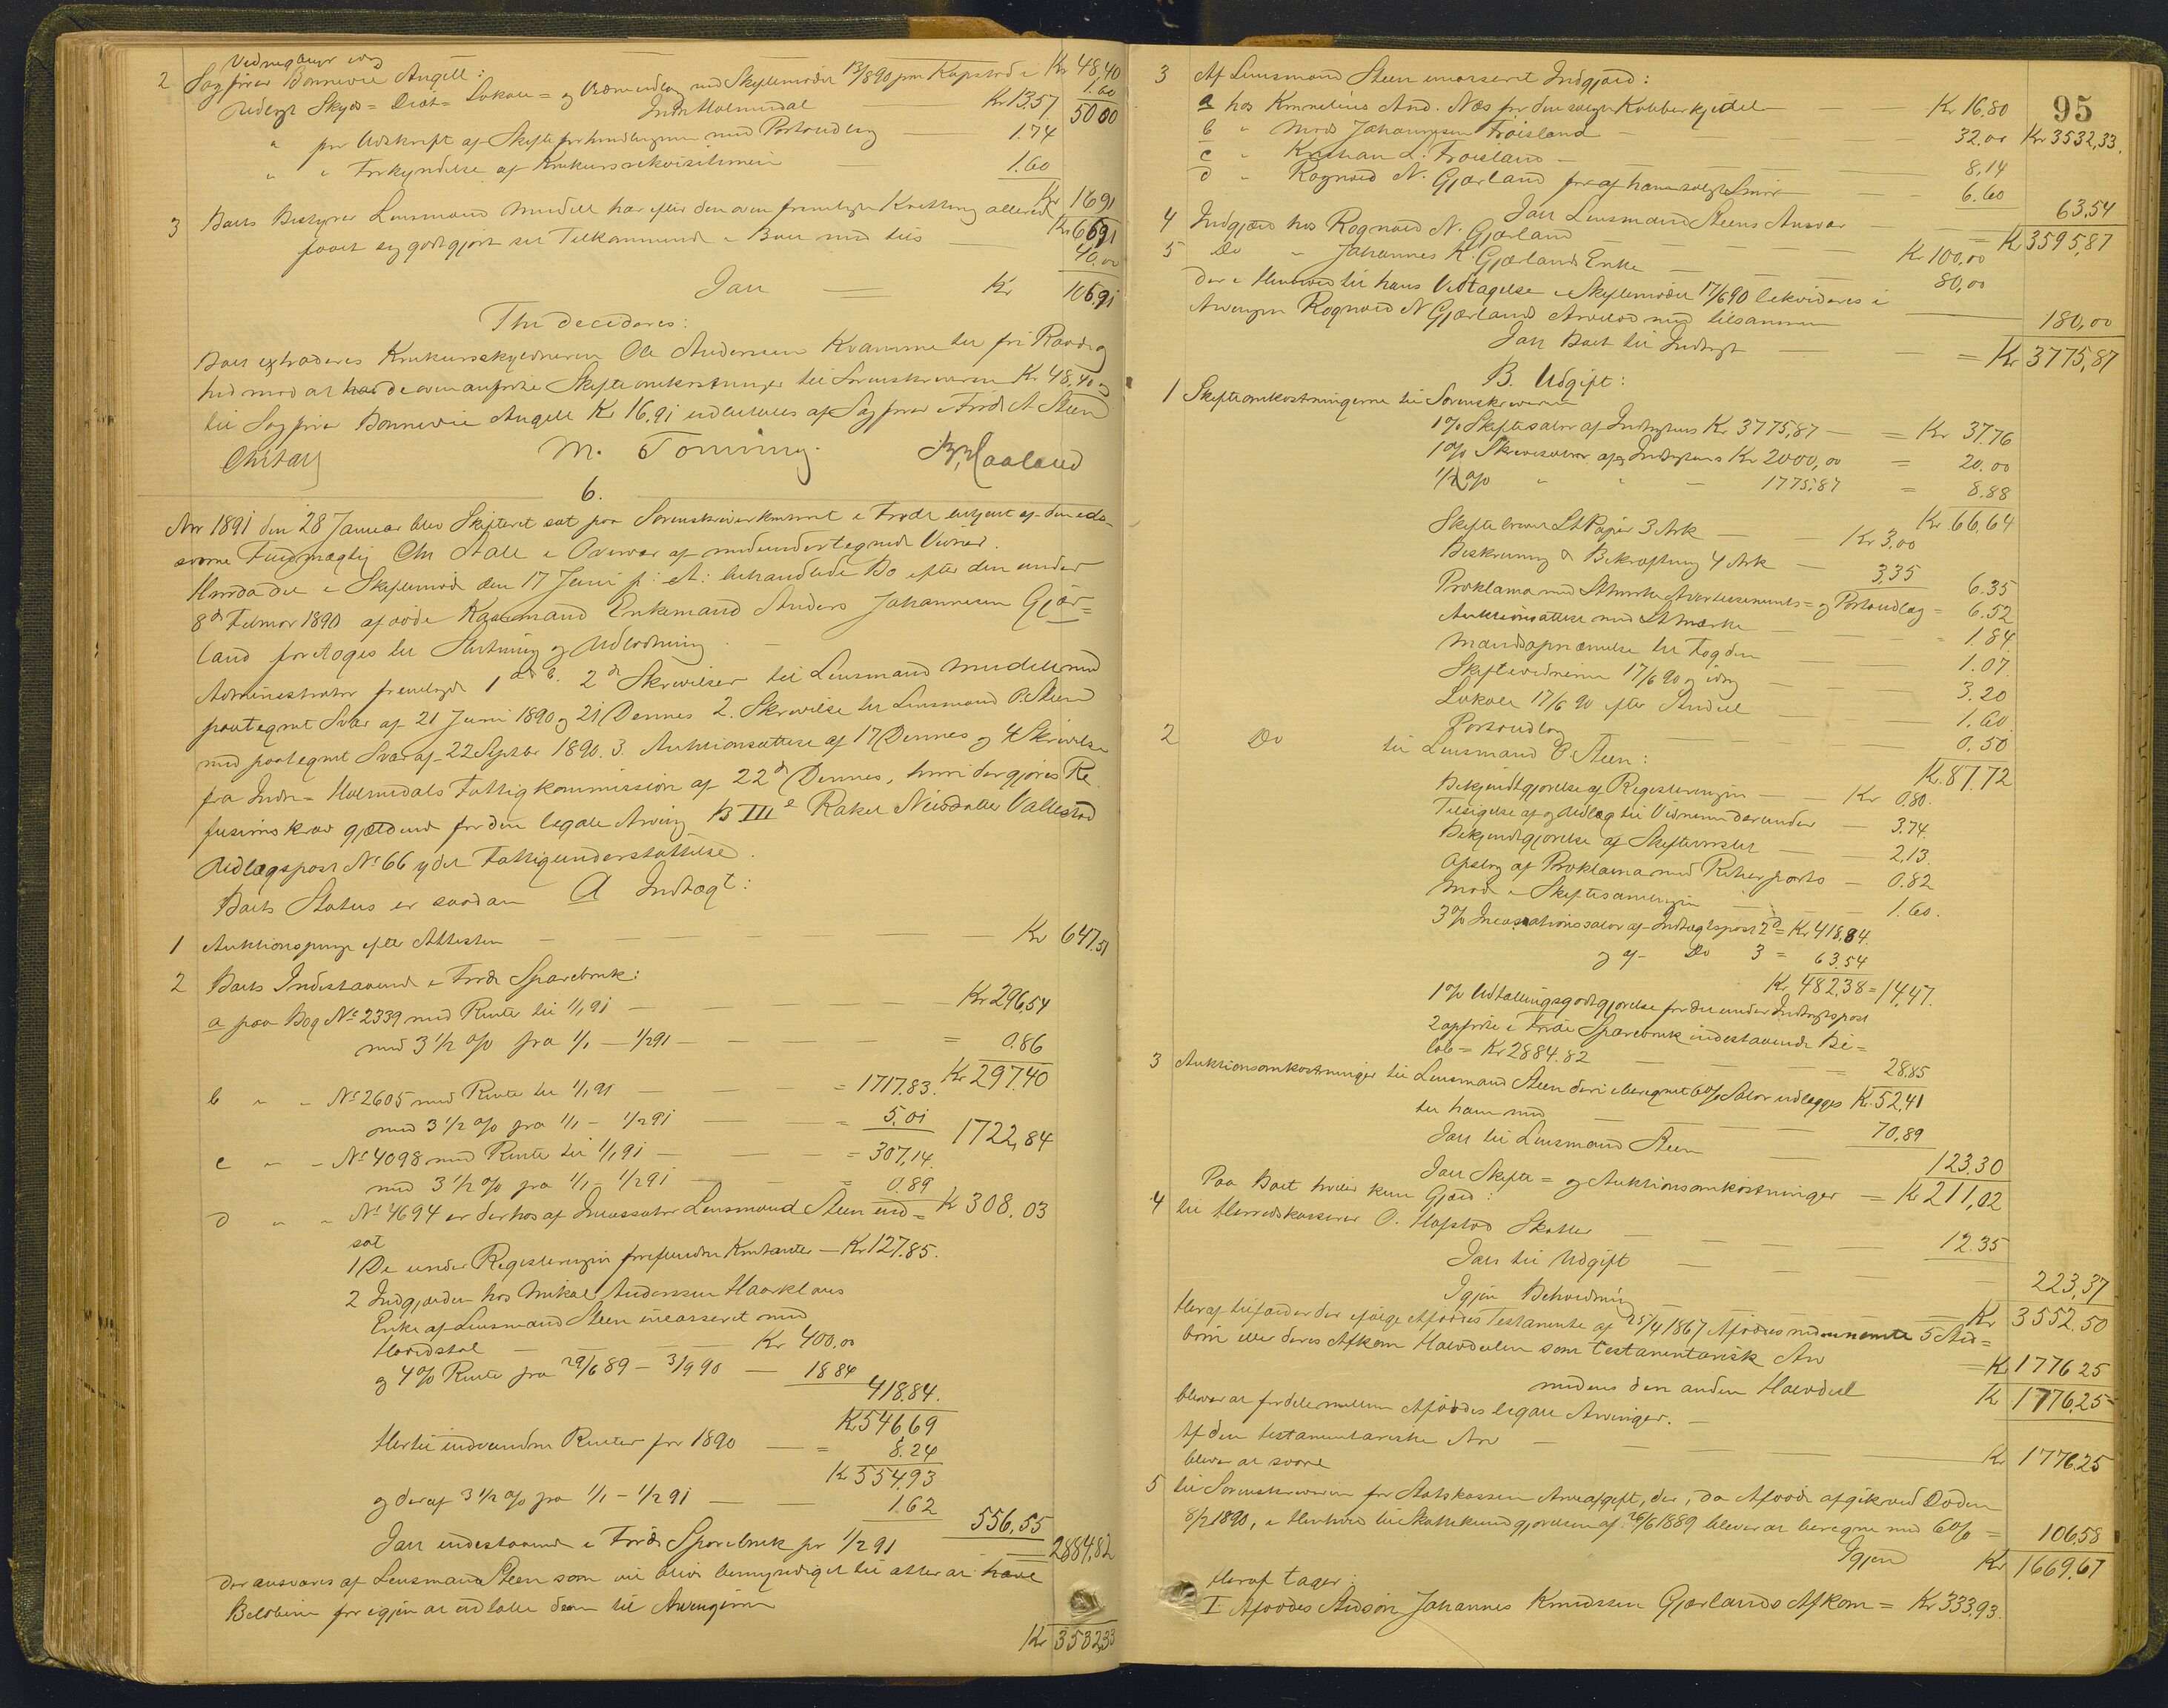 Vidnegebyr idag Kr 48,40
2 Sagfører Bonnevie Angell: 1.60
Udlagt Skyds= Diæt= Lokale= og Vidneudlæg ved Skiftemødet 13/890 paa Kapstad i 50 00
Indre Holmedal Kr 13,57
" for Udskrift af Skifteforhandlingerne med Portoudlæg 1.74
" " Forkyndelse af Konkursrekvisitionen 1.60
Kr 16 91
3 Boets Bestyrer Lensmand Mindell har efter den oven fremlagte Kvittering allerede Kr 66 91
faaet sig godtgjort sit Tilkommende i Boet med tils 40,00
Ialt — Kr 106,91
Thi decideres:
Boet extraderes Konkursskyldneren Ole Andersen Kvamme til fri Raadig
hed mod at de ovenanførte Skifteomkostninger til Sorenskriveren Kr 48,40 og
til Sagfører Bonnevie Angell Kr 16,91 udbetales af Sagfører i Førde A Steen
Chr Stall M. Tonning
6.
Aar 1891 den 28 Januar blev Skifteret sat paa Sorenskriverkontoret i Førde betjent af den eds=
svorne Fuldmægtig Chr Stall i Overvær af medundertegnede Vidner.
Hvorda det i Skiftemøde den 17 Juni f: A: behandlede Bo efter den under
8de Februar 1890 afdøde Kaarmand Enkemand Anders Johannesen Gjør=
land foretoges til Slutning og Udlodning.
Administrator fremlagde 1 2de Skrivelser til Lensmand Mindell med
paategnet Svar af 21 Juni 1890 og 21 Dennes 2. Skrivelse til Lensmand O Steen
med paategnet Svar af 22 Septbr 1890. 3. Auktionsattest af 17 Dennes og 4 Skrivelse
fra Indre= Holmedals Fattigkommission af 22de Dennes, hvori der gjøres Re
fusionskrav gjældende for den legale Arving B III 2 Rakel Nilsdatter Vallestad
Udlægspost No 66 ydet Fattigunderstøttelse.
Boets Status er saadan A Indtægt:
1 Auktionspenge efter Attesten Kr 647.51
2 Boets Indestaaende i Førde Sparebank:
a paa Bog No 2339 med Renter til 1/1 91 — Kr 296,54
med 3 1/2 % fra 1/1 — 1/2 91 — = 0.86
Kr 297.40
b " " No 2605 med Renter til 1/1 91 = 1717.83.
med 3 1/2 % fra 1/1 - 1/2 91 = 5,01
1722,84
c " " No 4098 med Renter til 1/1 91 — = 307,14.
med 3 1/2 % fra 1/1 - 1/2 91 = 0.89
Kr 308.03
d " " No 4694 er derhos af Incassator Lensmand Steen ind=
sat
1 De under Registeringen forefundne Kontanter — Kr 127.85.
2 Indgjælden hos Mikal Andersen Haarklaus
Enke af Lensmand Steen incasseret med
Hovedstol — Kr 400,00
og 4% Rente fra 29/6 89 — 3/9 90 — 18 84
418.84.
Kr 546,69
Hertil indvundne Renter for 1890 — = 8.24
Kr 554,93
og deraf 3 1/2 % fra 1/1 - 1/2 91 — 1.62
556,55
Ialt indestaaende i Førde Sparebank pr 1/2 91 2884,82
der ansvares af Lensmand Steen som vil blive bemyndiget til atter at hæve
Beløbene for igjen at udbetale dem til Arvingerne
Kr 3532,33
95
3 Af Lensmand Steen incasseret Indgjæld:
a hos Kornelius And. Næs for den solgte Kobberkjedel — Kr 16,80
Kr 3532,33.
b " Mads Johannesen Frøisland — 32.00
c " Kristian L. Frøisland — 8,14
d " Rognald N. Gjørland for af ham solgt Smør — 6.60
63.54
Ialt Lensmand Steens Ansvar = Kr 3595,87
4 Indgjæld hos Rognald N. Gjørland — Kr 100,00
5 Do " Johannes K. Gjørlands Enke — 80,00
der i Henhold til hans Vedtagelse i Skiftemødet 17/6 90 likvideres i
Arvingen Rognald N Gjørlands Arvelod med tilsammen — 180,00
Ialt Boet til Indtægt — = Kr 3775,87
B. Udgift:
1 Skifteomkostningerne til Sorenskriveren
1% Skiftesalær af Indtægtens Kr 3775,87 — = Kr 37.76
1% Skriversalær af Indtægtens Kr 2000,00 = 20.00
1/2 % " " — 1775,87 = 8.88
Kr 66,64
Skiftebrevet St Papir 3 Ark — Kr 3,00
Beskrivning & Bekræftning 4 Ark — 3,35 6.35
Proklama med St mærke Avertissements= og Portoudlæg = 6.52
Auktionsattest med St mærke — = 1.84
Mandsopnævnelse til Fogden — 1.07
Skiftevidnerne 17/6 90 og idag — 3.20
Lokale 17/6 90 efter Andeel — 1.60
Portoudlæg — 0.50
Kr. 87,72
2 Do til Lensmand O. Steen:
Bekjendtgjørelse af Registeringen — Kr 0,80.
Tilsigelse af og Udlæg til Vidnerne derunder — 3.74.
Bekjendtgjørelse af Skifterosler — 2,13.
Opslag af Proklama med Returporto — 0.82
Møde i Skiftesamlingen — 1.60.
3% Incassationssalær af Indtægtspost 2d = Kr 418,84.
og af Do 3 = 63.54
Kr 482,38 = 14,47.
1% Udtællingsgodtgjørelse for det under Indtægtspost
2 anførte i Førde Sparebank indestaaende Be=
løb = Kr 2884.82 — = 28.85
Kr. 52,41
3 Auktionsomkostninger til Lensmand Steen deri iberegnet 6% Salær udlægges
til ham med — 70,89
Ialt til Lensmand Steen — 123.30
Ialt Skifte= og Auktionsomkostninger = Kr 211,02
Paa Boet hviler kun Gjæld:
4 til Herredskasserer O. Hafstad Skatter — 12.35
Ialt til Udgift — 223,37
Igjen Beholdning — Kr 3552.50
Heraf tilfalder der ifølge Afdødes Testamente af 25/4 1867 Afdødes nedennævnte 5 Sted=
børn eller deres Afkom Halvdelen som testamentarisk Arv = Kr 1776 25
medens den anden Halvdel Kr 1776,25
bliver at fordele mellem Afdødes legale Arvinger. —
Af den testamentariske Arv — Kr 1776.25
bliver at svare
5 til Sorenskriveren for Statskassen Arveafgift, der, da Afdøde afgik ved Døden
8/2 1890, i Henhold til Skattekundgjørelsen af 26/6 1889 bliver at beregne med 6% = 106,58
Igjen Kr 1669,67
Heraf tager:
I Afdødes Stedsøn Johannes Knudsen Gjørlands Afkom = Kr 333,93.